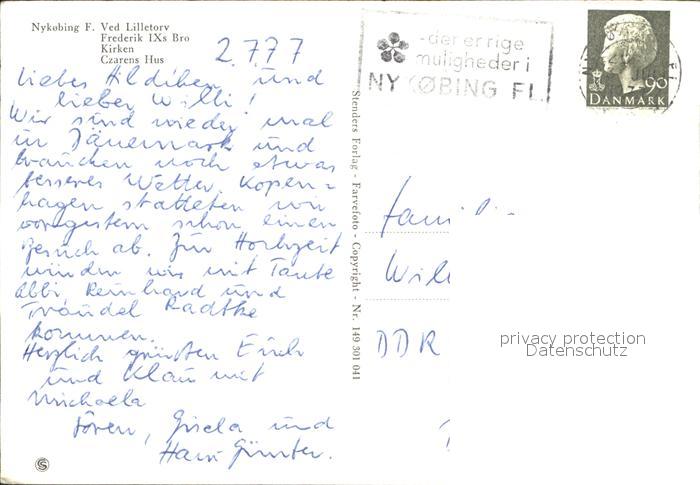 Nykøbing F. Ved Lilletorv
Frederik IXs Bro
Kirken
Czarens Hus
2.7.77
Liebes Hildchen und
lieber Willi!
Wir sind wieder mal
in Dänemark und
brauchen noch etwas
besseres Wetter. Kopen=
hagen statteten wir
vorgestern schon einen
Besuch ab. Zur Hochzeit
würden wir mit Tante
Abbi, Reinhard und
Traudel Radtke
kommen.
Herzlich grüßen Euch
und Klaus mit
Michaela
Sören, Gisela und
Hans Günter.
- der er rige
muligheder i
NYKØBING FL.
90
DANMARK
Stenders Forlag - Farvefoto - Copyright - Nr. 149 301 041
Famili
Will
DDR
privacy protection
Datenschutz